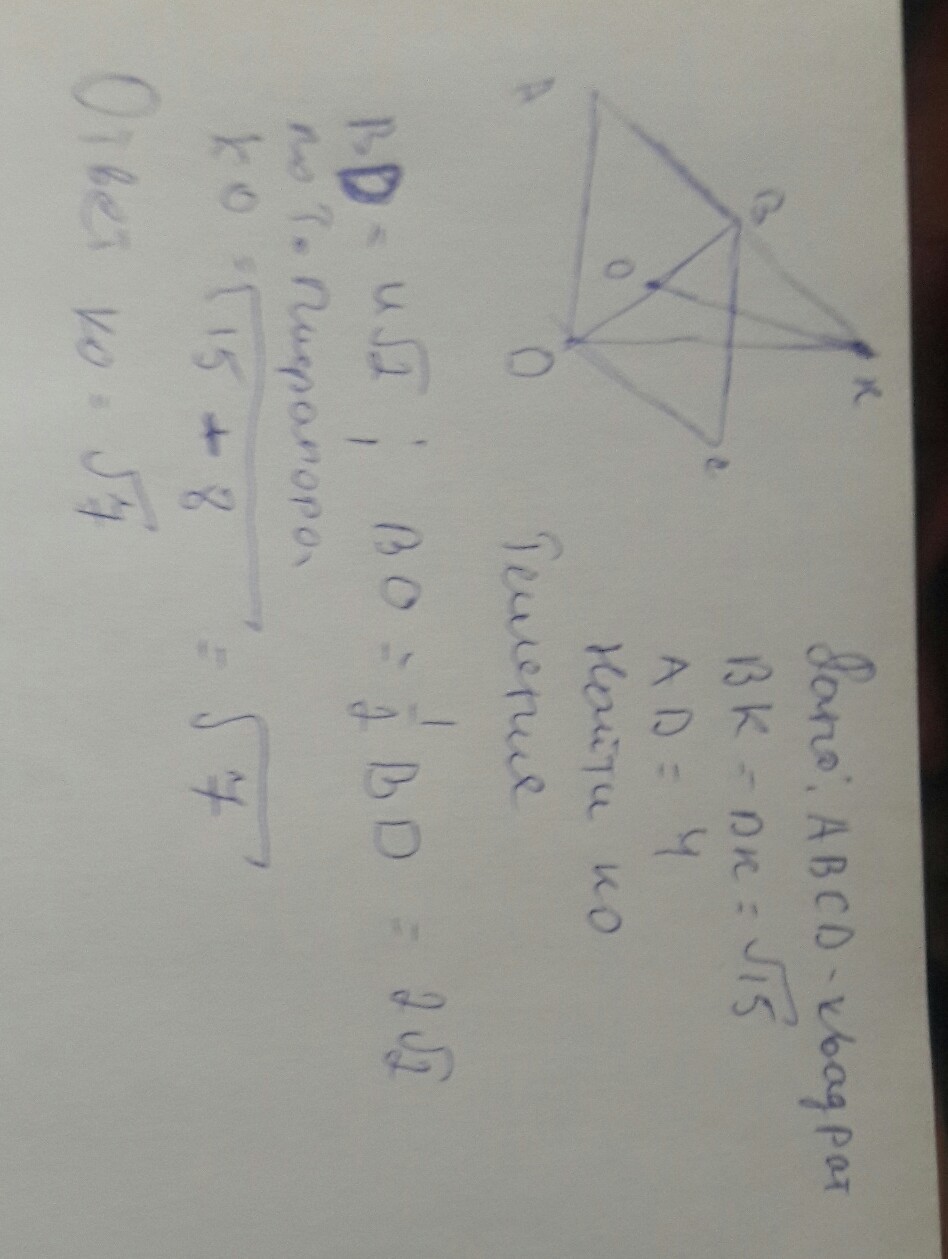 A
B
O
D
C
K
Дано: ABCD - квадрат
BK = DK = √15
AD = 4
Найти KO
Решение
BD = 4√2 ; BO = 1/2 BD = 2√2
по т. Пифагора
KO = √15 - 8 = √7
Ответ KO = √7